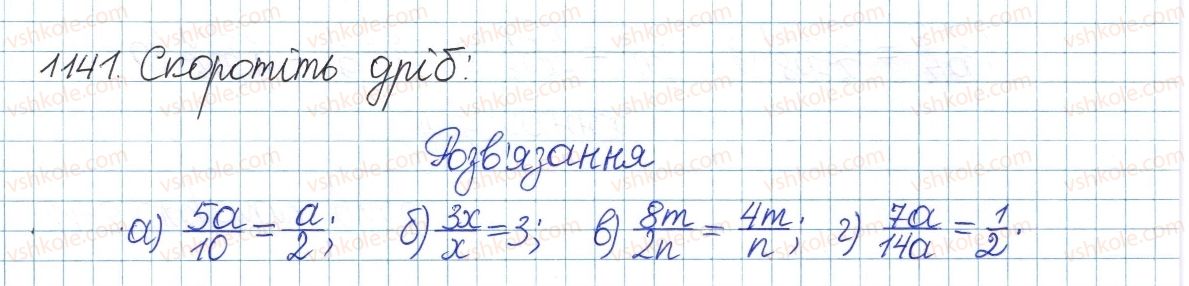 1141. Скоротіть дріб:
Розв'язання
а) 5a/10 = a/2; б) 3x/x = 3; в) 8m/2n = 4m/n; г) 7a/14a = 1/2.